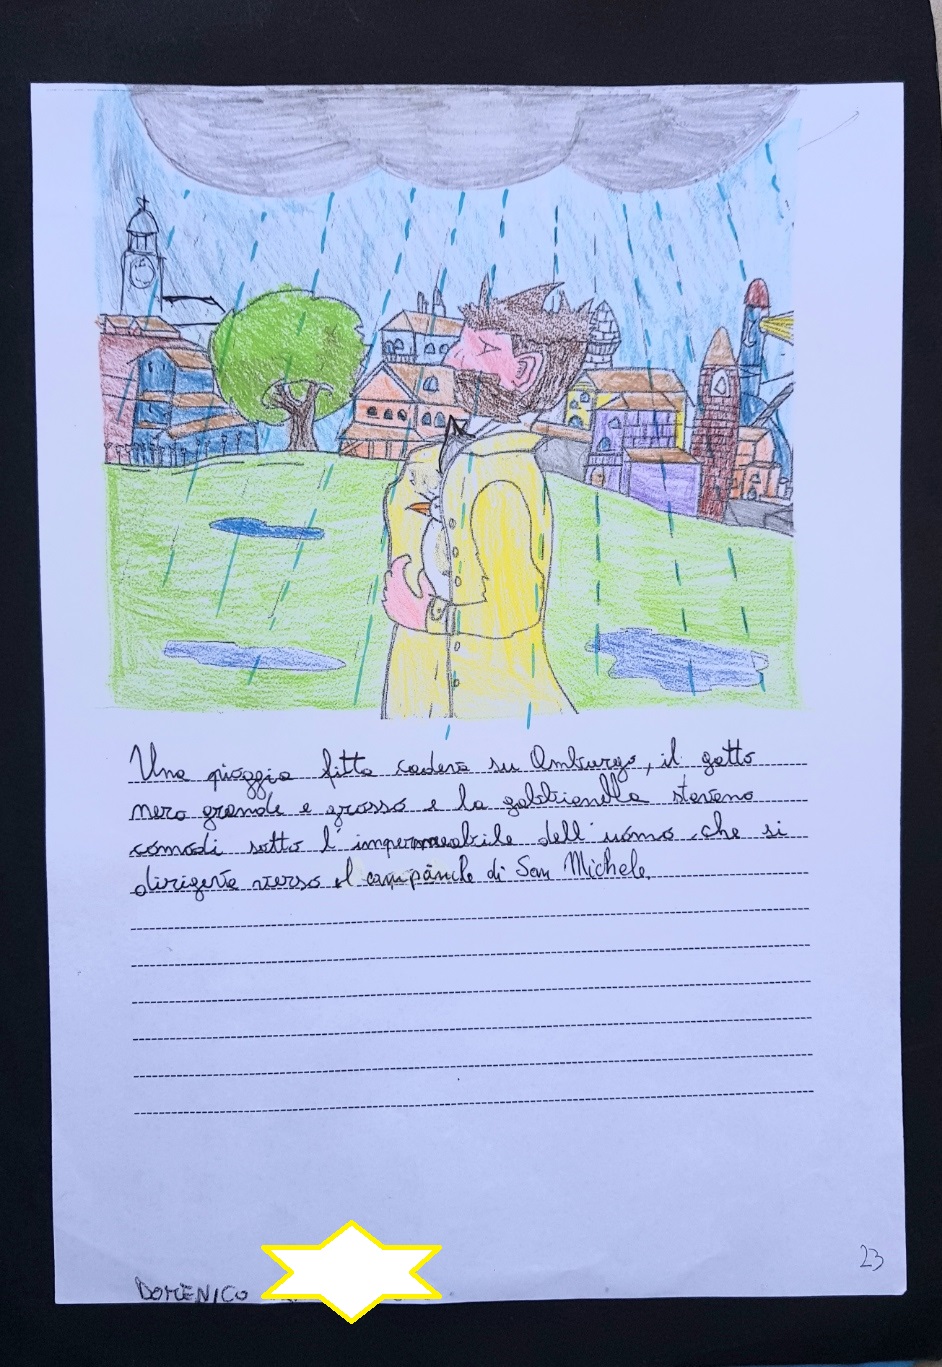 Una pioggia fitta cadeva su Amburgo, il gatto
nero grande e grosso e la gabbianella stavano
comodi sotto l'impermeabile dell'uomo che si
dirigeva verso il campanile di San Michele.
23
DOMENICO